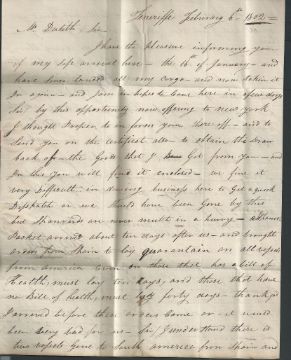 Teneriffe February 6th 1802
Mr Dabith Sir
I have the pleasure informing you
of my safe arrival here - the 16 of January - and
have been landed all my cargo and now taken it
In again - and in hopes to leave here in a few days
Sir by this opportunity now offering to New york
I thought Proper to in form you there off - and to
send you on the certificate also to obtain the draw
back of the Goods that I Got from you - and
In this you will find it enclosed - we find it
very Difficult in draning business here to Get a quick
Dispatch or we should have been Gone by this
but Spaniards are never in a hurry - a
Packet arrived about ten days after us - and brought
orders from Spain to lay quarantain on all vessels
from america those that has a bill of
Health must lay ten days, and those that have
no bill of health must lay forty days - thank god
I arrived before these orders came on - it would
been very bad for us - Sir I understand there is
two vessels gone to South america from there and